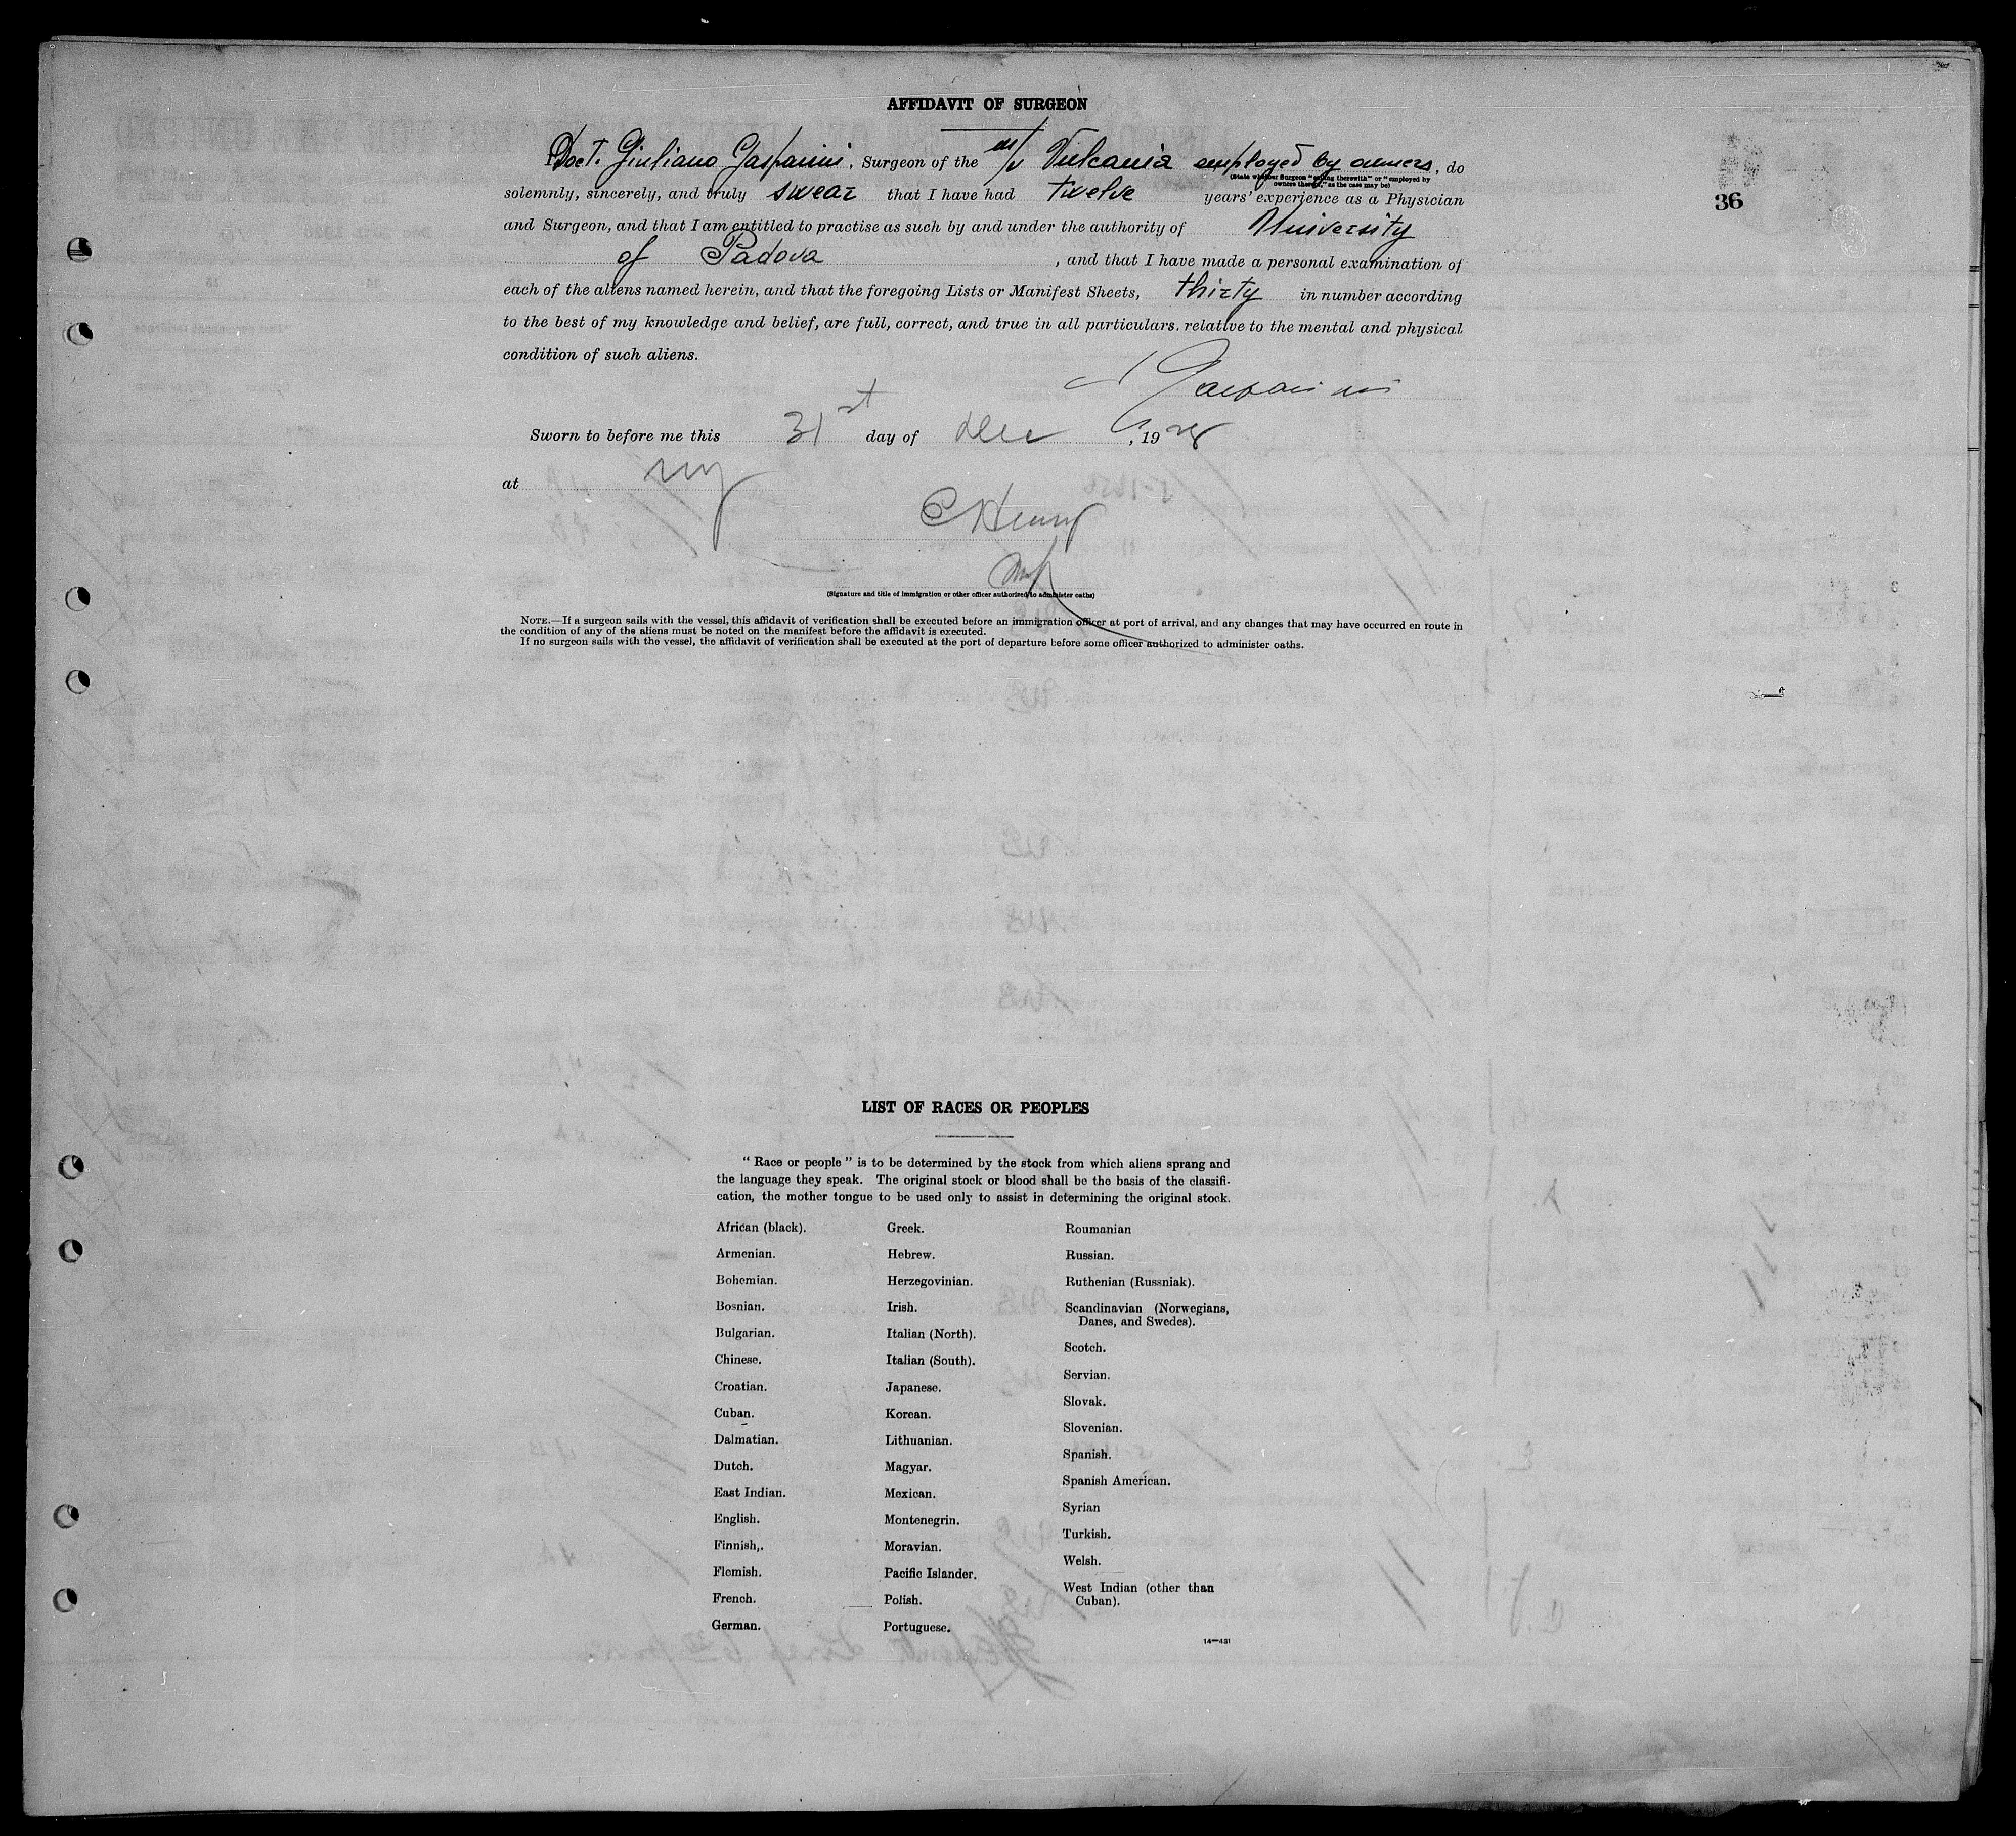 AFFIDAVIT OF SURGEON
36
I, Doct. Giuliano Gasparini, Surgeon of the m/v Vulcania employed by owners, do
(State whether Surgeon "sailing therewith" or "employed by
owners thereof," as the case may be)
solemnly, sincerely, and truly swear that I have had twelve years' experience as a Physician
and Surgeon, and that I am entitled to practise as such by and under the authority of University
of Padova, and that I have made a personal examination of
each of the aliens named herein, and that the foregoing Lists or Manifest Sheets, thirty in number according
to the best of my knowledge and belief, are full, correct, and true in all particulars, relative to the mental and physical
condition of such aliens.
Gasparini
Sworn to before me this 31st day of Dec, 1928
at NY
C Henry
(Signature and title of immigration or other officer authorized to administer oaths)
NOTE.—If a surgeon sails with the vessel, this affidavit of verification shall be executed before an immigration officer at port of arrival, and any changes that may have occurred en route in
the condition of any of the aliens must be noted on the manifest before the affidavit is executed.
If no surgeon sails with the vessel, the affidavit of verification shall be executed at the port of departure before some officer authorized to administer oaths.
LIST OF RACES OR PEOPLES
"Race or people" is to be determined by the stock from which aliens sprang and
the language they speak. The original stock or blood shall be the basis of the classifi-
cation, the mother tongue to be used only to assist in determining the original stock.
African (black).
Armenian.
Bohemian.
Bosnian.
Bulgarian.
Chinese.
Croatian.
Cuban.
Dalmatian.
Dutch.
East Indian.
English.
Finnish,.
Flemish.
French.
German.
Greek.
Hebrew.
Herzegovinian.
Irish.
Italian (North).
Italian (South).
Japanese.
Korean.
Lithuanian.
Magyar.
Mexican.
Montenegrin.
Moravian.
Pacific Islander.
Polish.
Portuguese.
Roumanian
Russian.
Ruthenian (Russniak).
Scandinavian (Norwegians,
Danes, and Swedes).
Scotch.
Servian.
Slovak.
Slovenian.
Spanish.
Spanish American.
Syrian
Turkish.
Welsh.
West Indian (other than
Cuban).
14—431